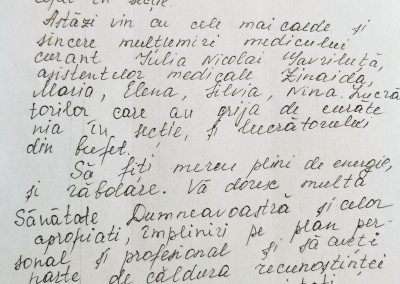 în secție.
Astăzi vin cu cele mai calde și
sincere mulțemiri medicului
curant Iulia Nicolai Gavriluță,
asistentelor medicale Zinaida,
Maria, Elena, Silvia, Nina. Lucră
torilor care au grija de curățe
nia în secție, și lucrătorului
din bufet.
Să fiți mereu plini de energie,
și răbdare. Vă doresc multă
Sănătate Dumneavoastră și celor
apropiați, împliniri pe plan per-
sonal și profesional și să aveți
parte de căldura recunoștinței